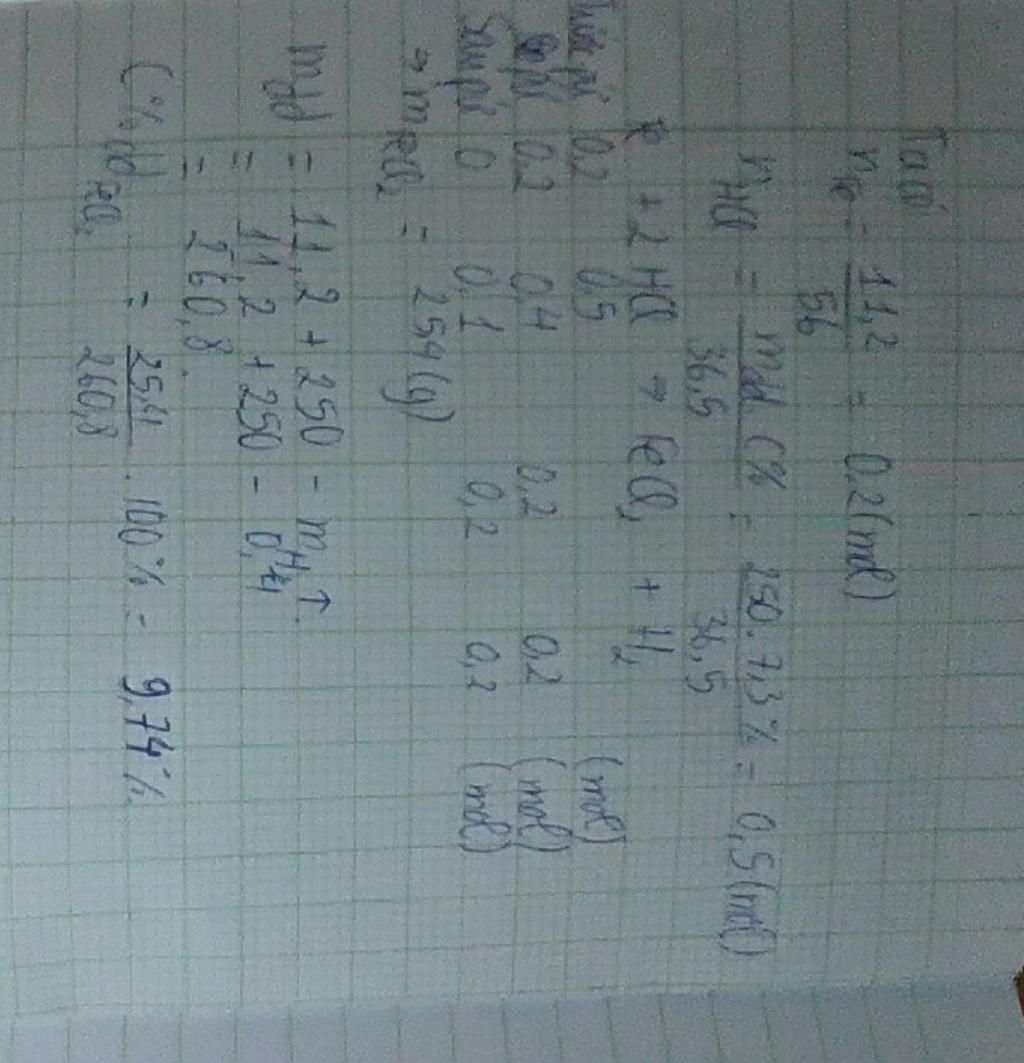 Ta có
nFe = 11,2 / 56 = 0,2 (mol)
nHCl = mdd . C% / 36,5 = 250 . 7,3% / 36,5 = 0,5 (mol)
Fe + 2 HCl → FeCl2 + H2
Trước pứ 0,2 0,5 (mol)
pứ 0,2 0,4 0,2 0,2 (mol)
Sau pứ 0 0,1 0,2 0,2 (mol)
→ mFeCl2 = 254 (g)
mdd = 11,2 + 250 - mH2↑
= 11,2 + 250 - 0,4
= 260,8.
C% dd FeCl2 = 25,4 / 260,8 . 100% = 9,74%.